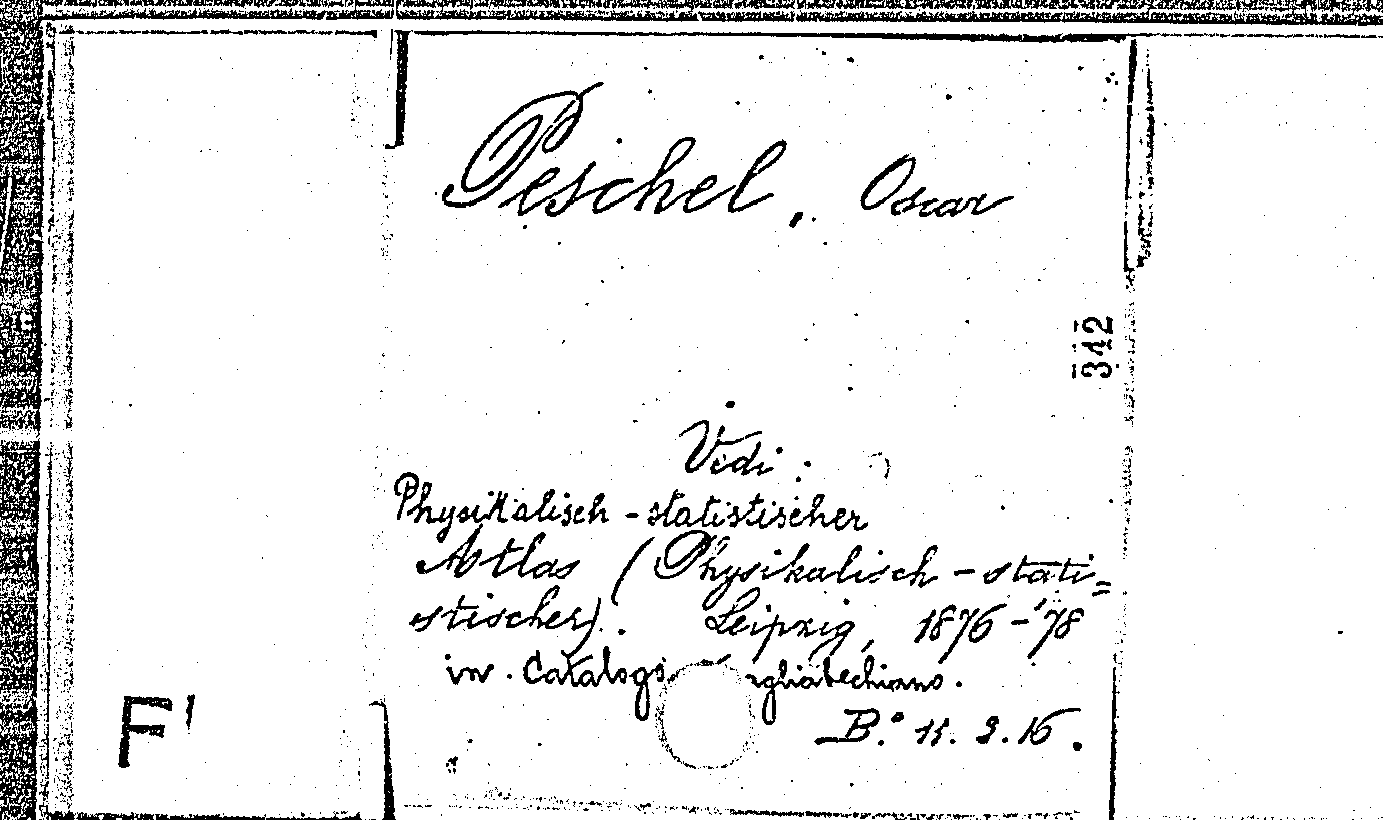 Peschel, Oscar
342
Vedi:
Physikalisch-statistischer
Atlas (Physikalisch-stati=
stischer). Leipzig, 1876-'78
in. Catalogo
B.° 15. 2. 16.
F'